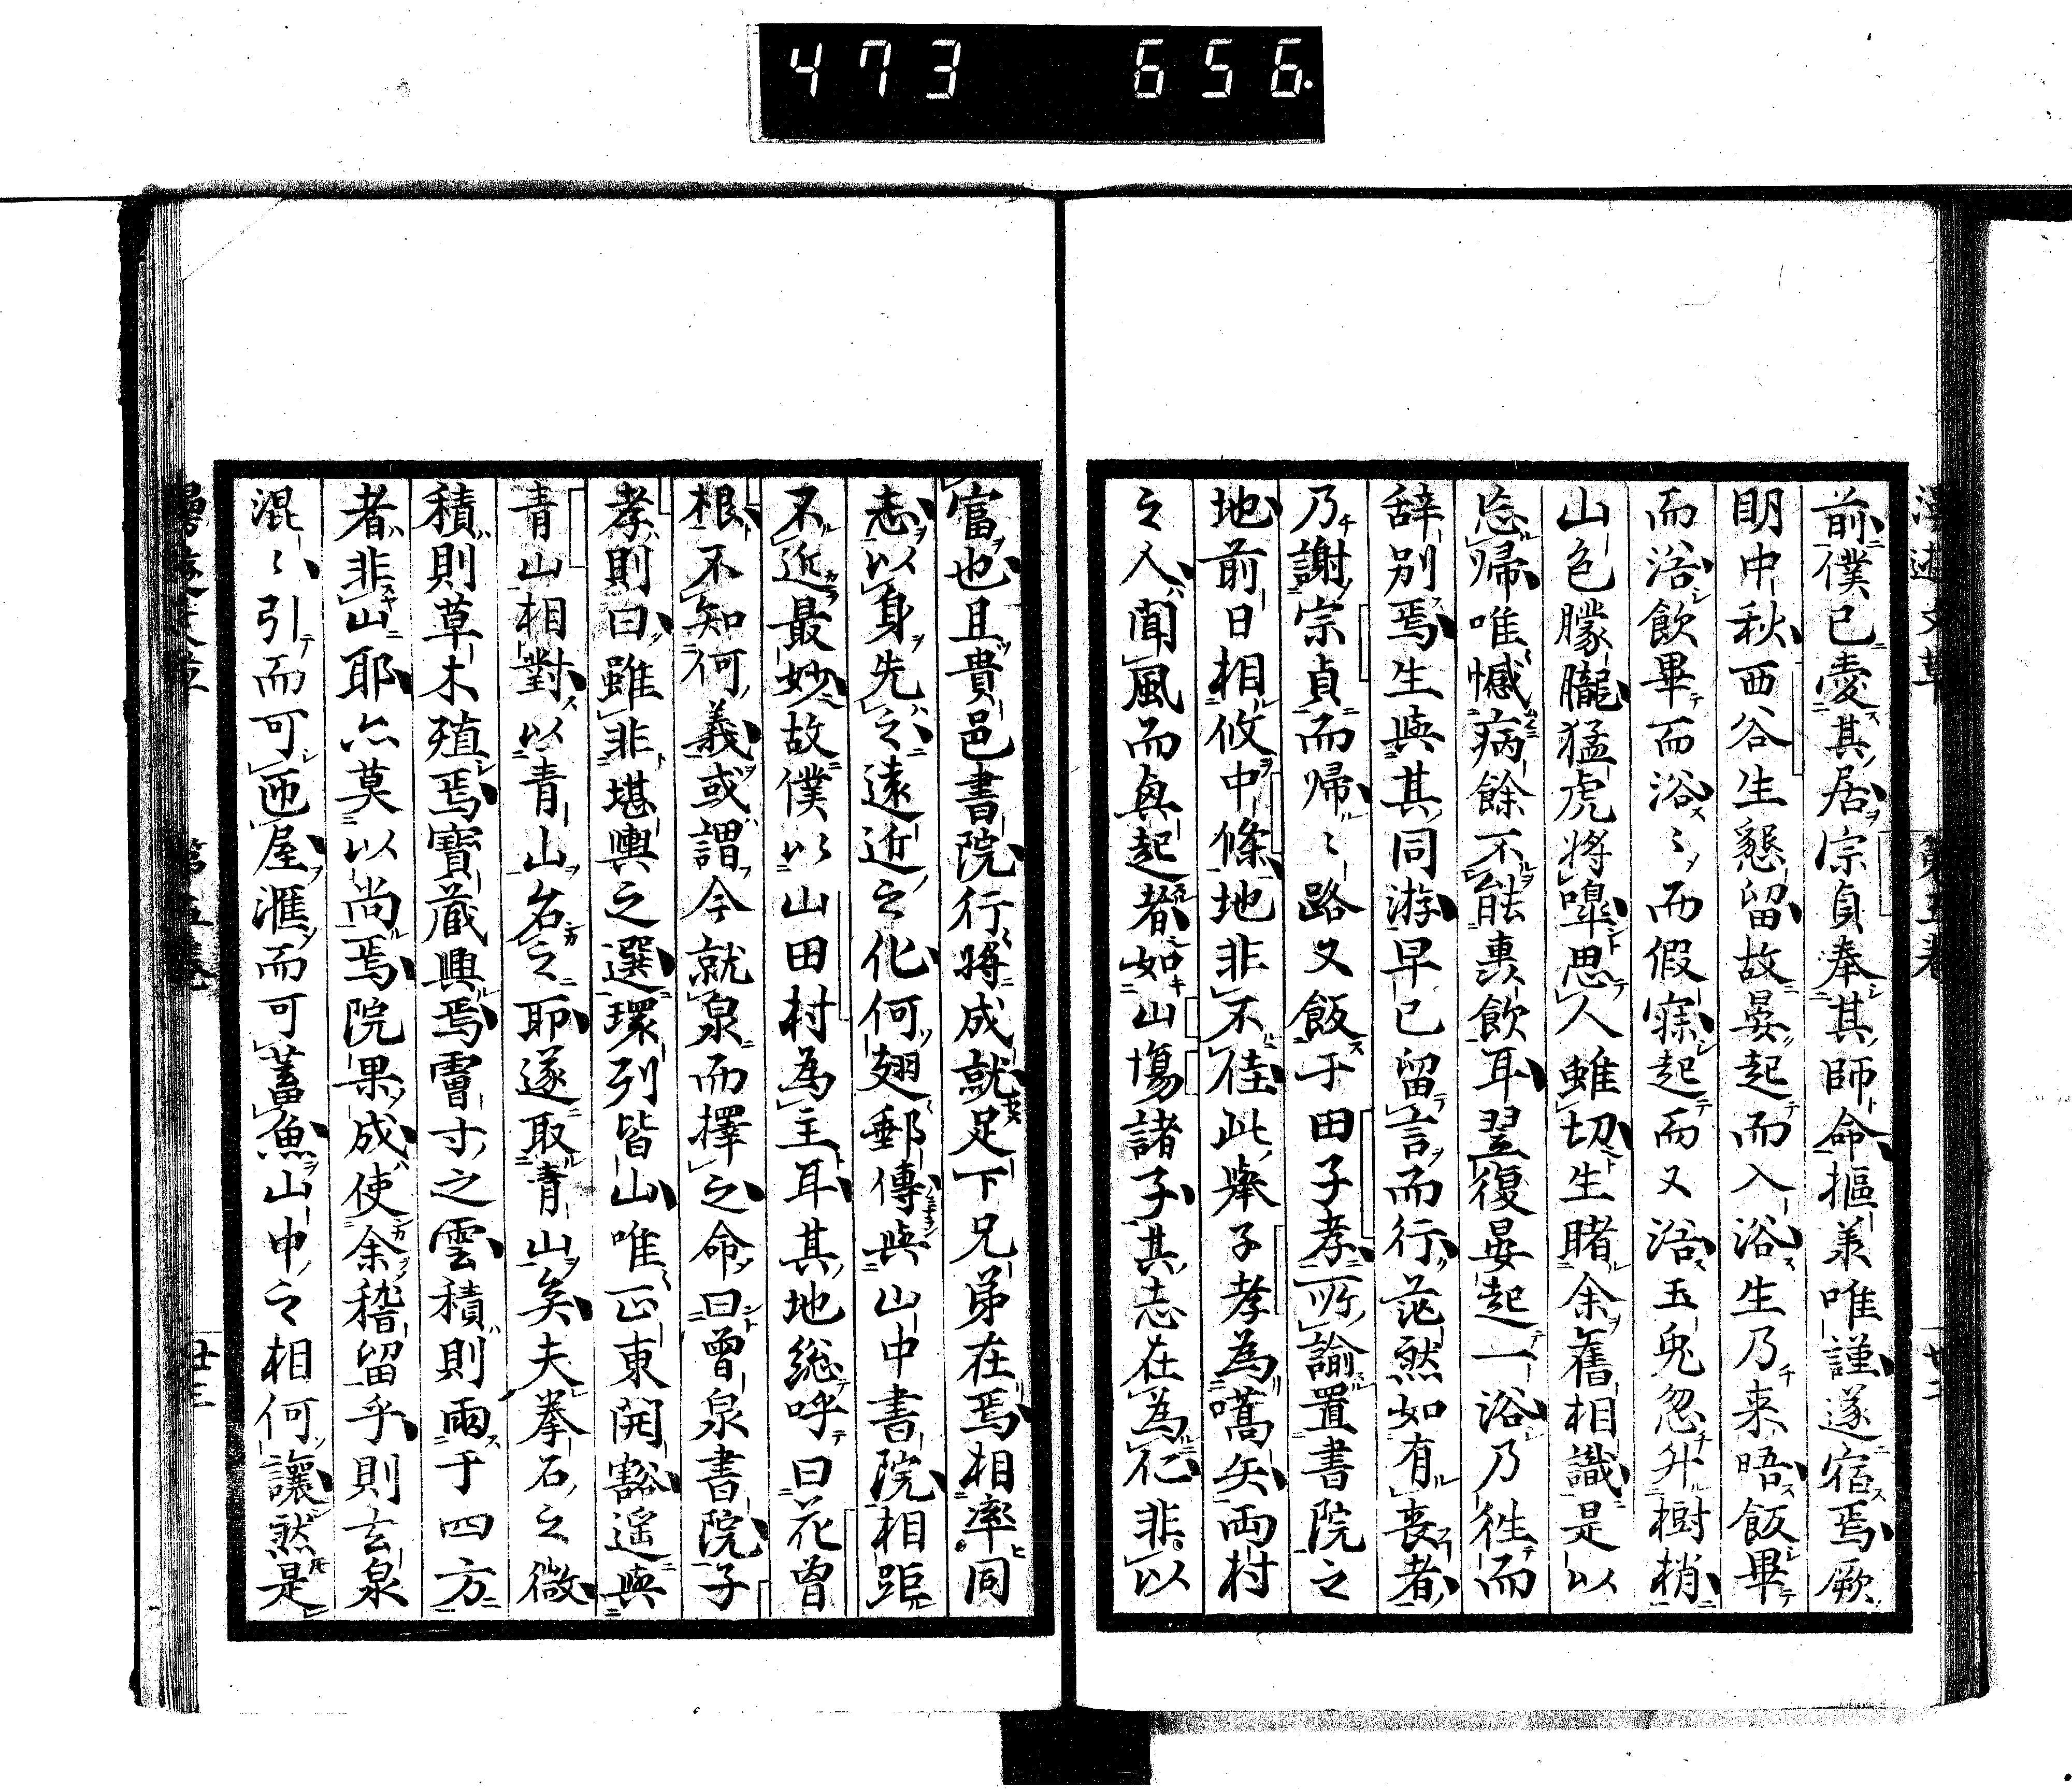 473 656
前僕已愛其居宗貞奉其師命摳羕唯謹遂宿焉厥
明中秋西谷生懇留故晏起而入浴生乃来晤飯畢
而浴飲畢而浴〻而假寐起而又浴玉兎忽升樹梢
山色朦朧猛虎將嘷思人雖切生睹余舊相識是以
忘帰唯憾病餘不能裏飲耳翌復晏起一浴乃徃而
辞別焉生與其同游早已留言而行茫然如有喪者
乃謝宗貞而帰〻路又飯于田子孝所諭置書院之
地前日相攸中條地非不佳此擧子孝為嚆矢両村
之入聞風而興起者如山塲諸子其志在為仁非以
富也且貴邑書院行將成就足下兄弟在焉相率同
志以身先之遠近之化何翅郵傳與山中書院相距
不近最妙故僕以山田村為主耳其地総呼曰花曽
根不知何義或謂今就泉而擇之命曰曽泉書院子
孝則曰雖非堪輿之選環列皆山唯正東開豁遥與
青山相對以青山名之耶遂取青山矣夫拳石之微
積則草木殖焉寶蔵興焉膚寸之雲積則雨于四方
者非山耶亦莫以尚焉院果成使余稽留乎則玄泉
混〻引而可匝屋滙而可蓄魚山中之相何讓然是
第五巻
廿三